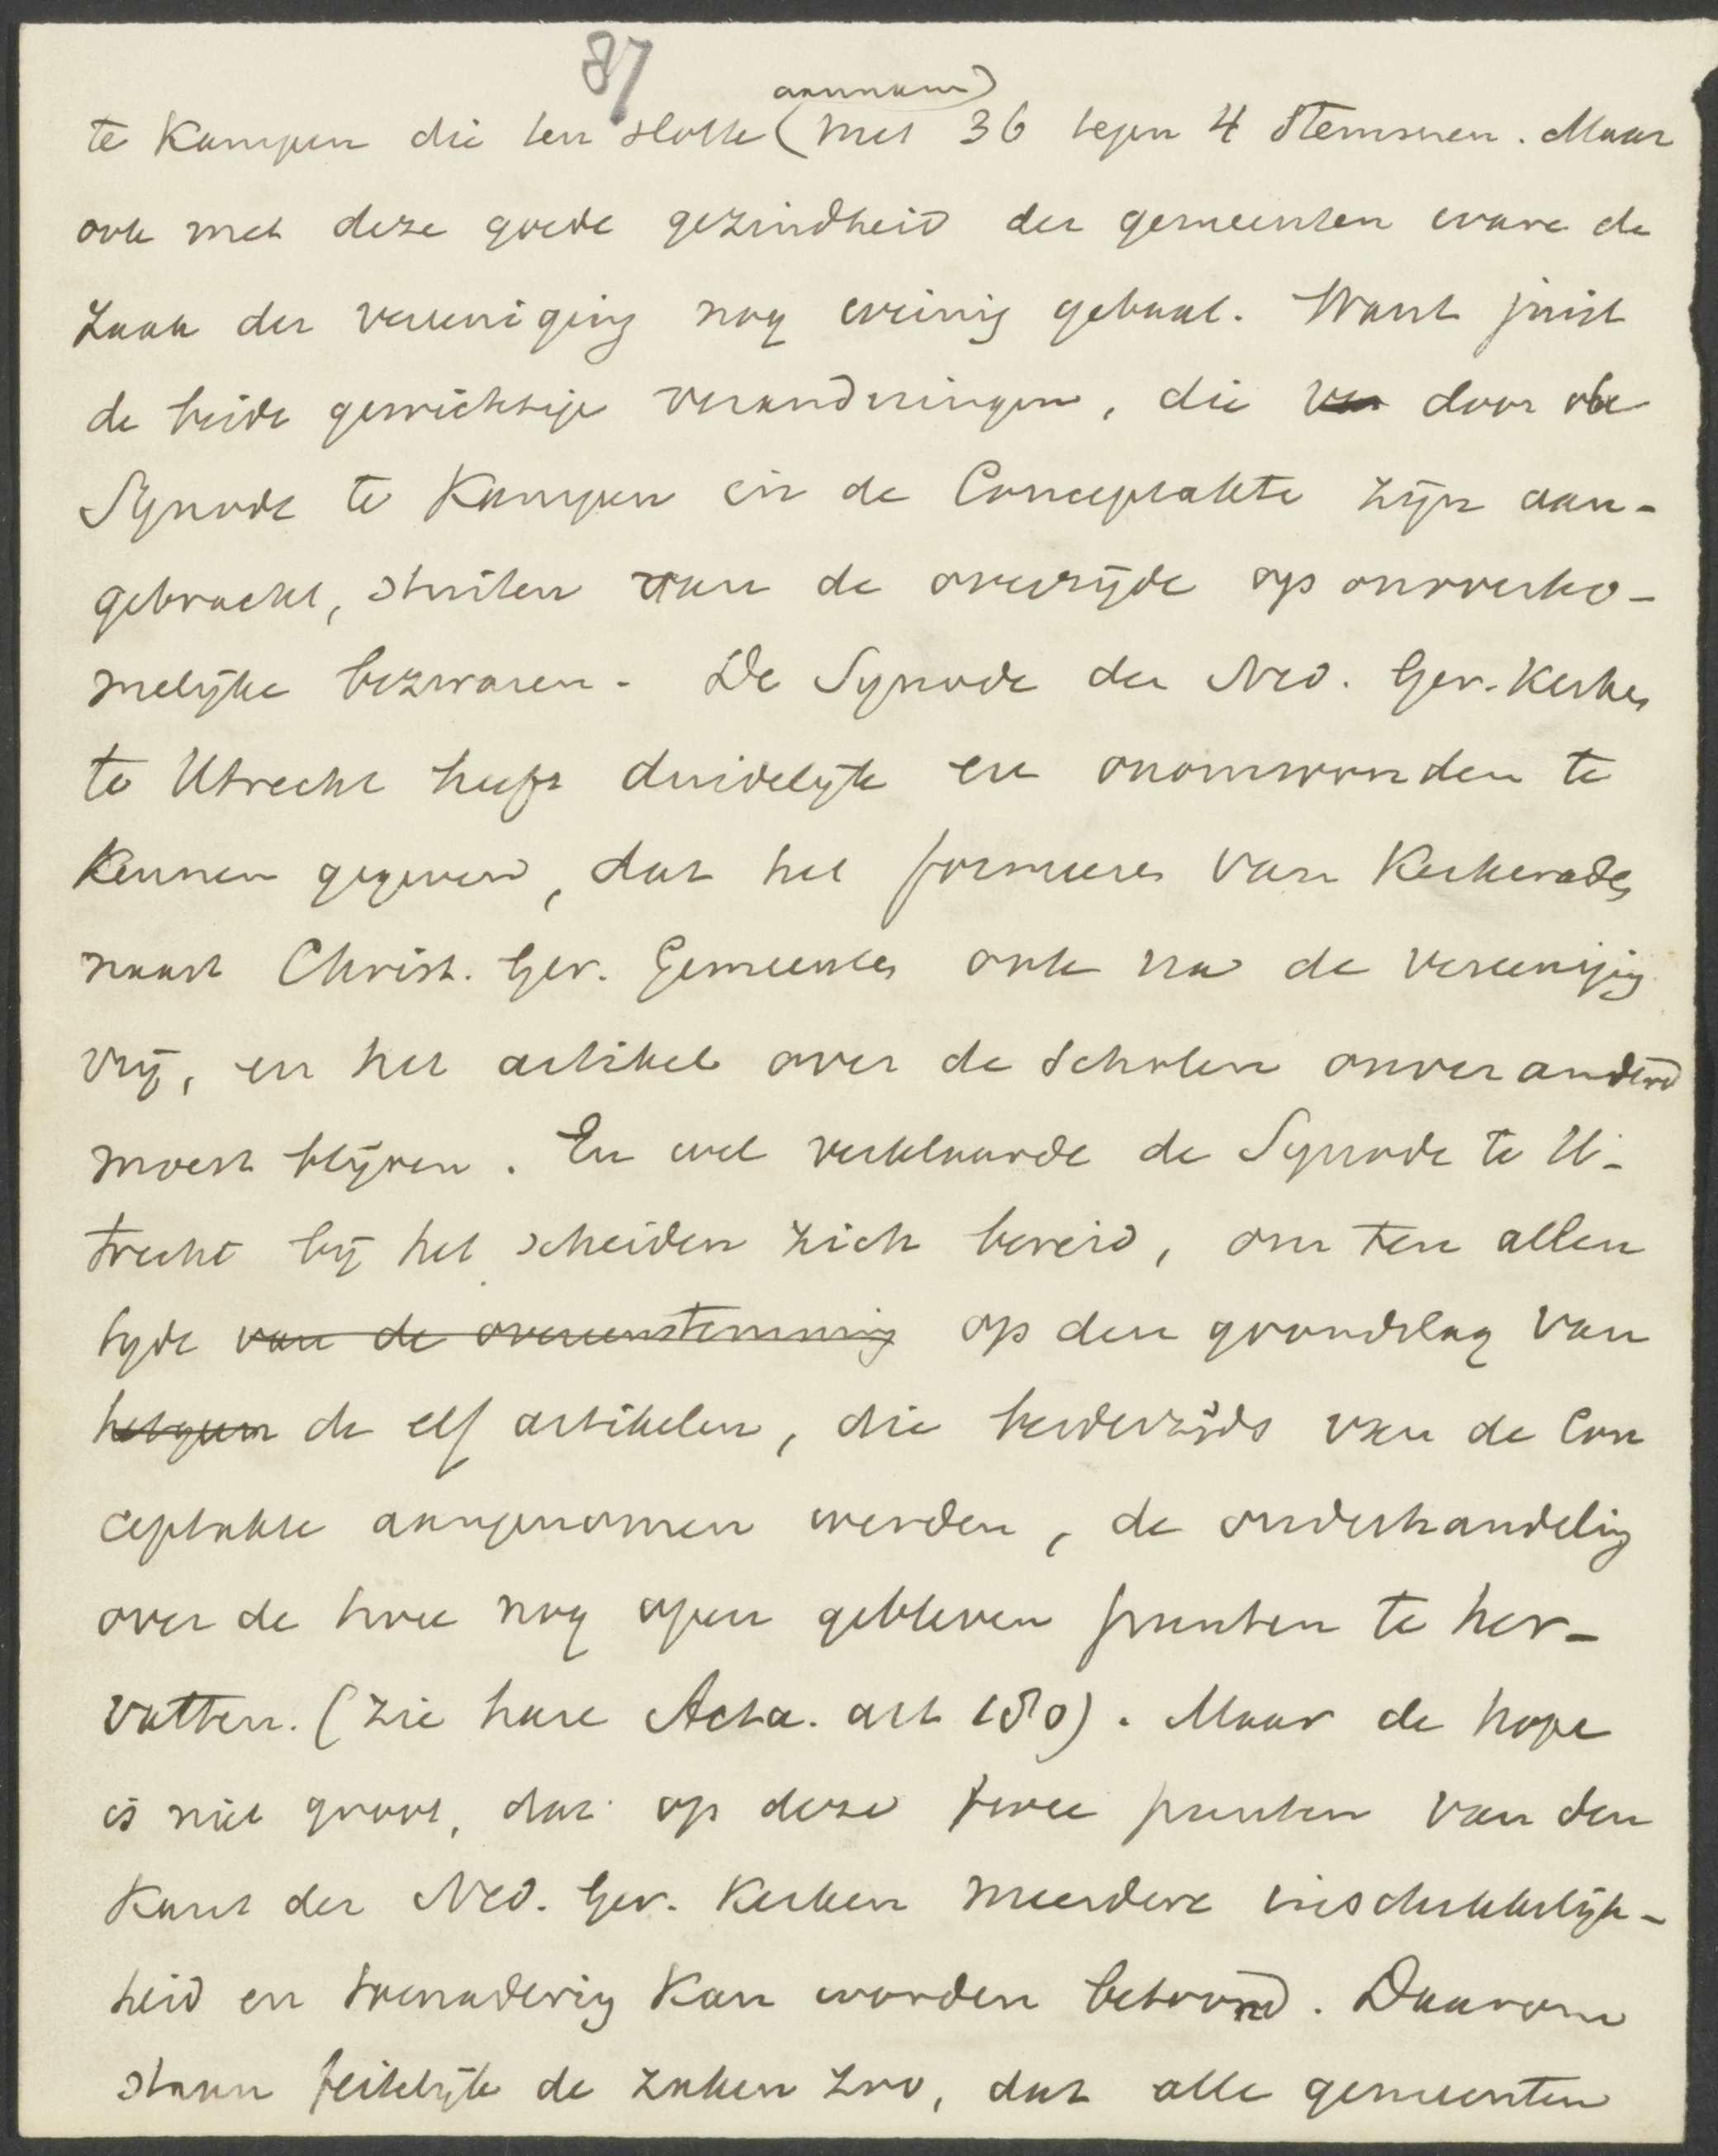 87
aannam)
te Kampen die ten slotte (met 36 tegen 4 stemmen. Maar
ook met deze goede gezindheid der gemeenten ware de
zaak der vereeniging nog weinig gebaat. Want juist
de beide gewichtige veranderingen, die van door de
Synode te Kampen in de Conceptakte zijn aan-
gebracht, stuiten aan de overzijde op onoverko-
melijke bezwaren. De Synode der Ned. Ger. Kerken
te Utrecht heeft duidelijk en onomwonden te
kennen gegeven, dat het formeeren van Kerkeraden
naast Christ. Ger. Gemeenten ook na de vereeniging
vrij, en het artikel over de Scholen onveranderd
moest blijven. En wel verklaarde de Synode te U-
trecht bij het scheiden zich bereid, om ten allen
tijde van de overeenstemming op den grondslag van
hetgeen de elf artikelen, die beiderzijds van de Con
ceptakte aangenomen werden, de onderhandeling
over de twee nog open gebleven punten te her-
vatten. (Zie hare Acta. art 180). Maar de hope
is niet groot, dat op deze twee punten van den
kant der Ned. Ger. Kerken meerdere inschikkelijk-
heid en toenadering kan worden betoond. Daarom
staan feitelijk de zaken zoo, dat alle gemeenten